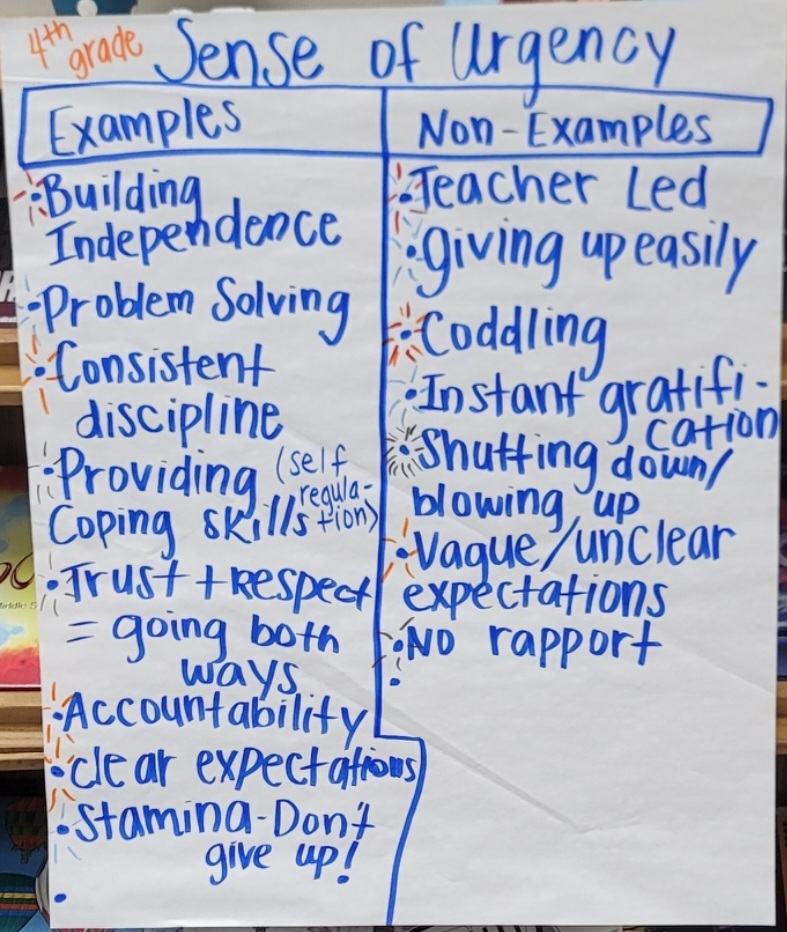 4th grade Sense of Urgency
Examples
• Building
Independence
• Problem Solving
• Consistent
discipline
• Providing (self
regula-
Coping skills tion)
• Trust + Respect
= going both
ways
• Accountability
• clear expectations
• Stamina - Don't
give up!
•
Non-Examples
• Teacher Led
• giving up easily
• Coddling
• Instant gratifi-
cation
• Shutting down/
blowing up
• Vague/unclear
expectations
• No rapport
•